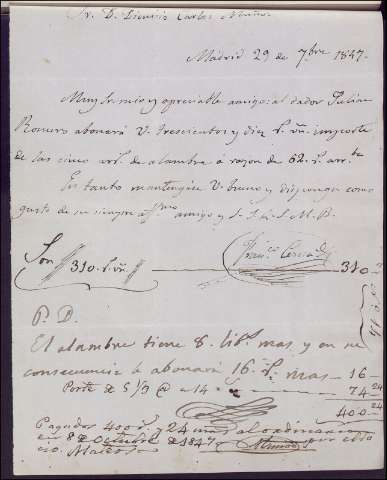 Sr. D. Dionisio Carlos Muñoz
Madrid 29 de 7bre 1847.
Muy Sr. mio y apreciable amigo: al dador Julian
Romero abonará V. trescientos y diez r.s vn. importe
de las cinco ars. de alambre á razon de 62. r.s arrba
En tanto mantengase V. bueno y disponga como
guste de su siempre affmo amigo y S. S. Q. S. M. B.
Son 310. r.s vn. Franco 310
P. D.
El alambre tiene 8. libs mas y en su
consecuencia le abonará 16. r.s mas - 16 -
Porte de 5 1/3 @ a 14 74 24
400 - 24
Pagados 400 rs. y 24 mrs al ordinario
en 8 de Octubre de 1847 por
cio. Mateos